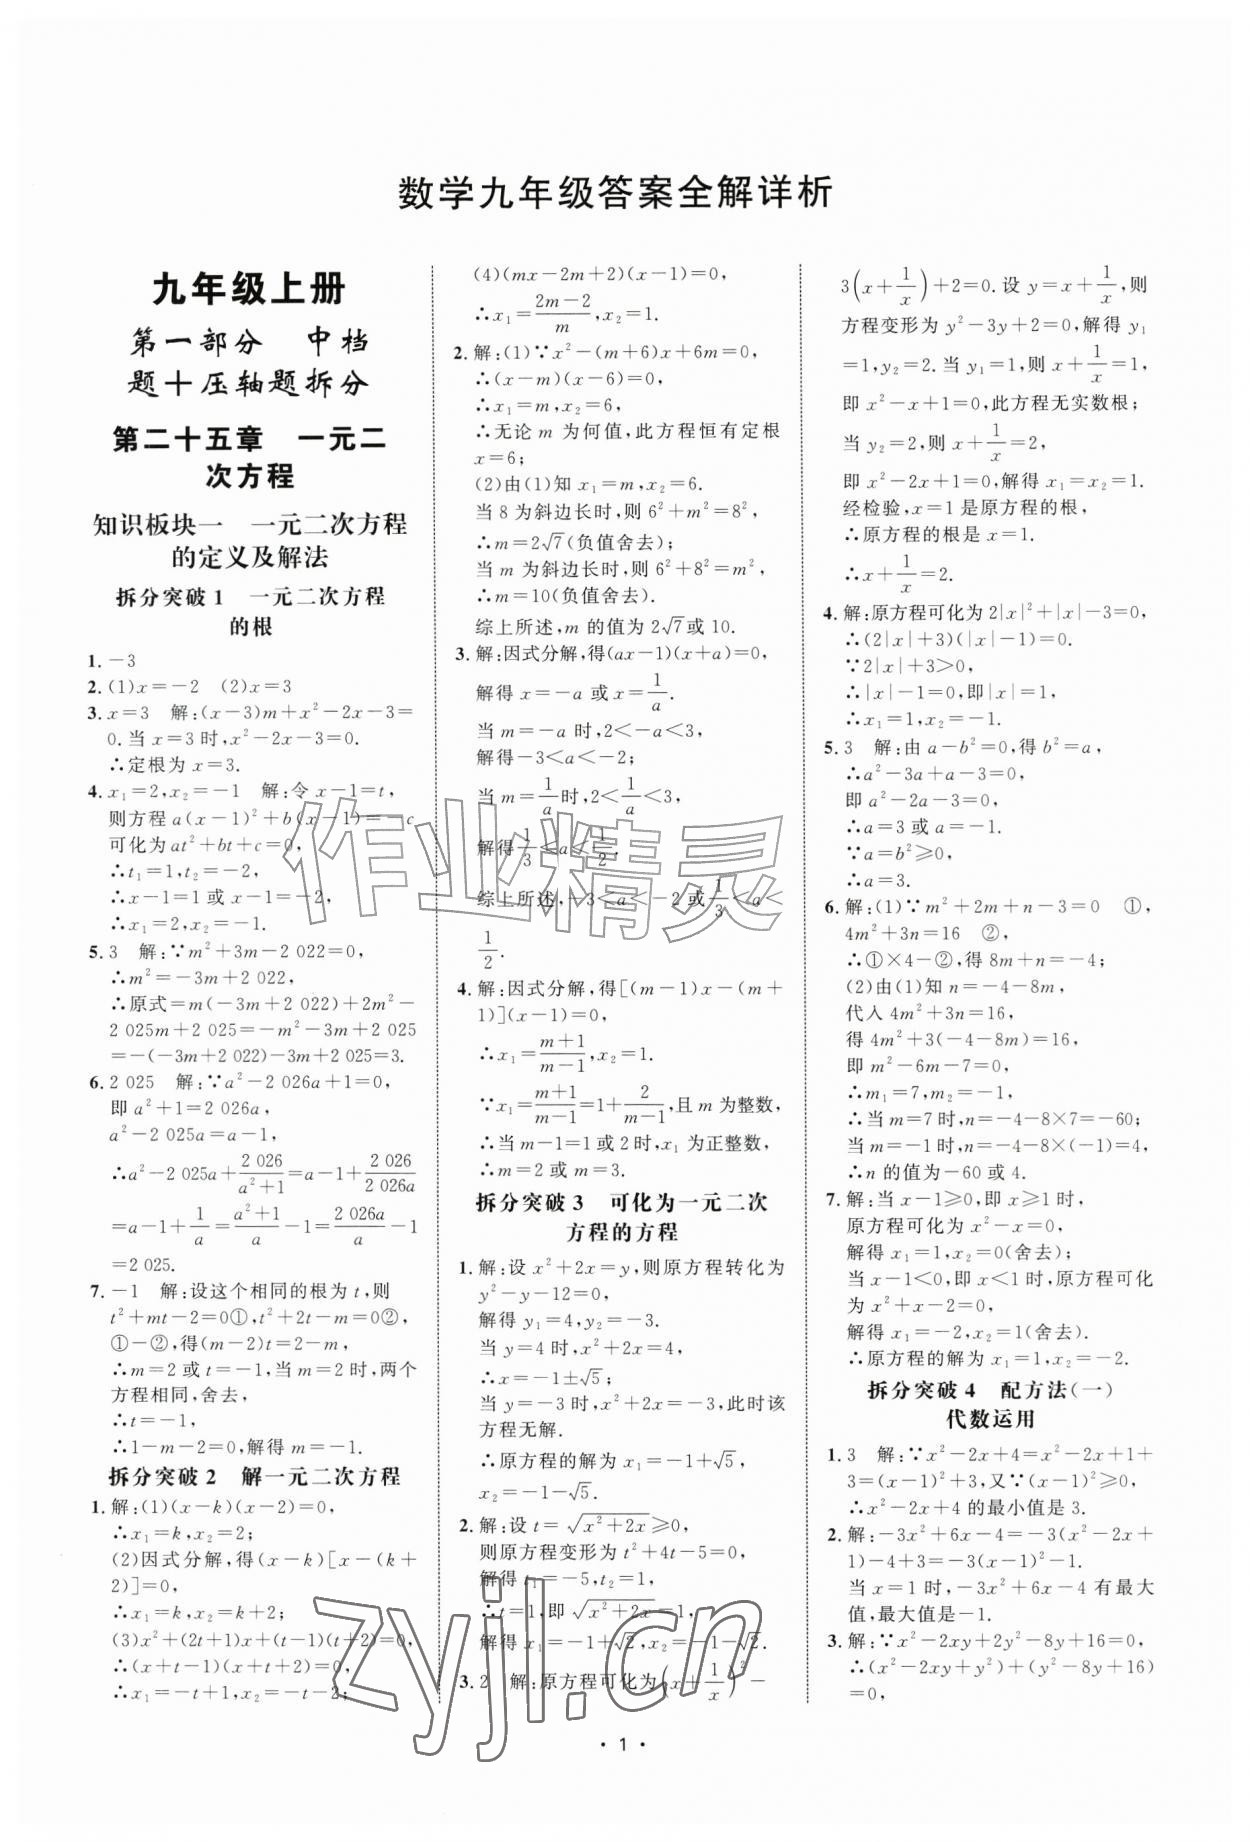 数学九年级答案全解详析
九年级上册
第一部分　中档
题+压轴题拆分
第二十五章　一元二
次方程
知识板块一　一元二次方程
的定义及解法
拆分突破1　一元二次方程
的根
1. －3
2. (1)x=－2　(2)x=3
3. x=3　解:(x－3)m+x²－2x－3=
0.当x=3时,x²－2x－3=0.
∴定根为x=3.
4. x₁=2,x₂=－1　解:令x－1=t,
则方程a(x－1)²+b(x－1)=－c
可化为at²+bt+c=0,
∴t₁=1,t₂=－2,
∴x－1=1或x－1=－2,
∴x₁=2,x₂=－1.
5. 3　解:∵m²+3m－2 022=0,
∴m²=－3m+2 022,
∴原式=m(－3m+2 022)+2m²－
2 025m+2 025=－m²－3m+2 025
=－(－3m+2 022)－3m+2 025=3.
6. 2 025　解:∵a²－2 026a+1=0,
即a²+1=2 026a,
a²－2 025a=a－1,
∴a²－2 025a+2 026/(a²+1)=a－1+2 026/(2 026a)
=a－1+1/a=(a²+1)/a－1=2 026a/a－1
=2 025.
7. －1　解:设这个相同的根为t,则
t²+mt－2=0①,t²+2t－m=0②,
①－②,得(m－2)t=2－m,
∴m=2或t=－1,当m=2时,两个
方程相同,舍去,
∴t=－1,
∴1－m－2=0,解得m=－1.
拆分突破2　解一元二次方程
1. 解:(1)(x－k)(x－2)=0,
∴x₁=k,x₂=2;
(2)因式分解,得(x－k)[x－(k+
2)]=0,
∴x₁=k,x₂=k+2;
(3)x²+(2t+1)x+(t－1)(t+2)=0,
∴(x+t－1)(x+t+2)=0,
∴x₁=－t+1,x₂=－t－2;
(4)(mx－2m+2)(x－1)=0,
∴x₁=(2m－2)/m,x₂=1.
2. 解:(1)∵x²－(m+6)x+6m=0,
∴(x－m)(x－6)=0,
∴x₁=m,x₂=6,
∴无论m为何值,此方程恒有定根
x=6;
(2)由(1)知x₁=m,x₂=6.
当8为斜边长时,则6²+m²=8²,
∴m=2√7(负值舍去);
当m为斜边长时,则6²+8²=m²,
∴m=10(负值舍去).
综上所述,m的值为2√7或10.
3. 解:因式分解,得(ax－1)(x+a)=0,
解得x=－a或x=1/a.
当m=－a时,2<－a<3,
解得－3<a<－2;
当m=1/a时,2<1/a<3,
解得1/3<a<1/2.
综上所述,－3<a<－2或1/3<a<
1/2.
4. 解:因式分解,得[(m－1)x－(m+
1)](x－1)=0,
∴x₁=(m+1)/(m－1),x₂=1.
∵x₁=(m+1)/(m－1)=1+2/(m－1),且m为整数,
∴当m－1=1或2时,x₁为正整数,
∴m=2或m=3.
拆分突破3　可化为一元二次
方程的方程
1. 解:设x²+2x=y,则原方程转化为
y²－y－12=0,
解得y₁=4,y₂=－3.
当y=4时,x²+2x=4,
∴x=－1±√5;
当y=－3时,x²+2x=－3,此时该
方程无解.
∴原方程的解为x₁=－1+√5,
x₂=－1－√5.
2. 解:设t=√(x²+2x)≥0,
则原方程变形为t²+4t－5=0,
解得t₁=－5,t₂=1,
∴t=1,即√(x²+2x)=1,
解得x₁=－1+√2,x₂=－1－√2.
3. 2　解:原方程可化为(x+1/x)²－
3(x+1/x)+2=0.设y=x+1/x,则
方程变形为y²－3y+2=0,解得y₁
=1,y₂=2.当y₁=1,则x+1/x=1,
即x²－x+1=0,此方程无实数根;
当y₂=2,则x+1/x=2,
即x²－2x+1=0,解得x₁=x₂=1.
经检验,x=1是原方程的根,
∴原方程的根是x=1.
∴x+1/x=2.
4. 解:原方程可化为2|x|²+|x|－3=0,
∴(2|x|+3)(|x|－1)=0.
∵2|x|+3>0,
∴|x|－1=0,即|x|=1,
∴x₁=1,x₂=－1.
5. 3　解:由a－b²=0,得b²=a,
∴a²－3a+a－3=0,
即a²－2a－3=0,
∴a=3或a=－1.
∵a=b²≥0,
∴a=3.
6. 解:(1)∵m²+2m+n－3=0　①,
4m²+3n=16　②,
∴①×4－②,得8m+n=－4;
(2)由(1)知n=－4－8m,
代入4m²+3n=16,
得4m²+3(－4－8m)=16,
即m²－6m－7=0,
∴m₁=7,m₂=－1,
∴当m=7时,n=－4－8×7=－60;
当m=－1时,n=－4－8×(－1)=4,
∴n的值为－60或4.
7. 解:当x－1≥0,即x≥1时,
原方程可化为x²－x=0,
解得x₁=1,x₂=0(舍去);
当x－1<0,即x<1时,原方程可化
为x²+x－2=0,
解得x₁=－2,x₂=1(舍去).
∴原方程的解为x₁=1,x₂=－2.
拆分突破4　配方法(一)
代数运用
1. 3　解:∵x²－2x+4=x²－2x+1+
3=(x－1)²+3,又∵(x－1)²≥0,
∴x²－2x+4的最小值是3.
2. 解:－3x²+6x－4=－3(x²－2x+
1)－4+3=－3(x－1)²－1.
当x=1时,－3x²+6x－4有最大
值,最大值是－1.
3. 解:∵x²－2xy+2y²－8y+16=0,
∴(x²－2xy+y²)+(y²－8y+16)
=0,
· 1 ·
作业精灵
zyjl.cn